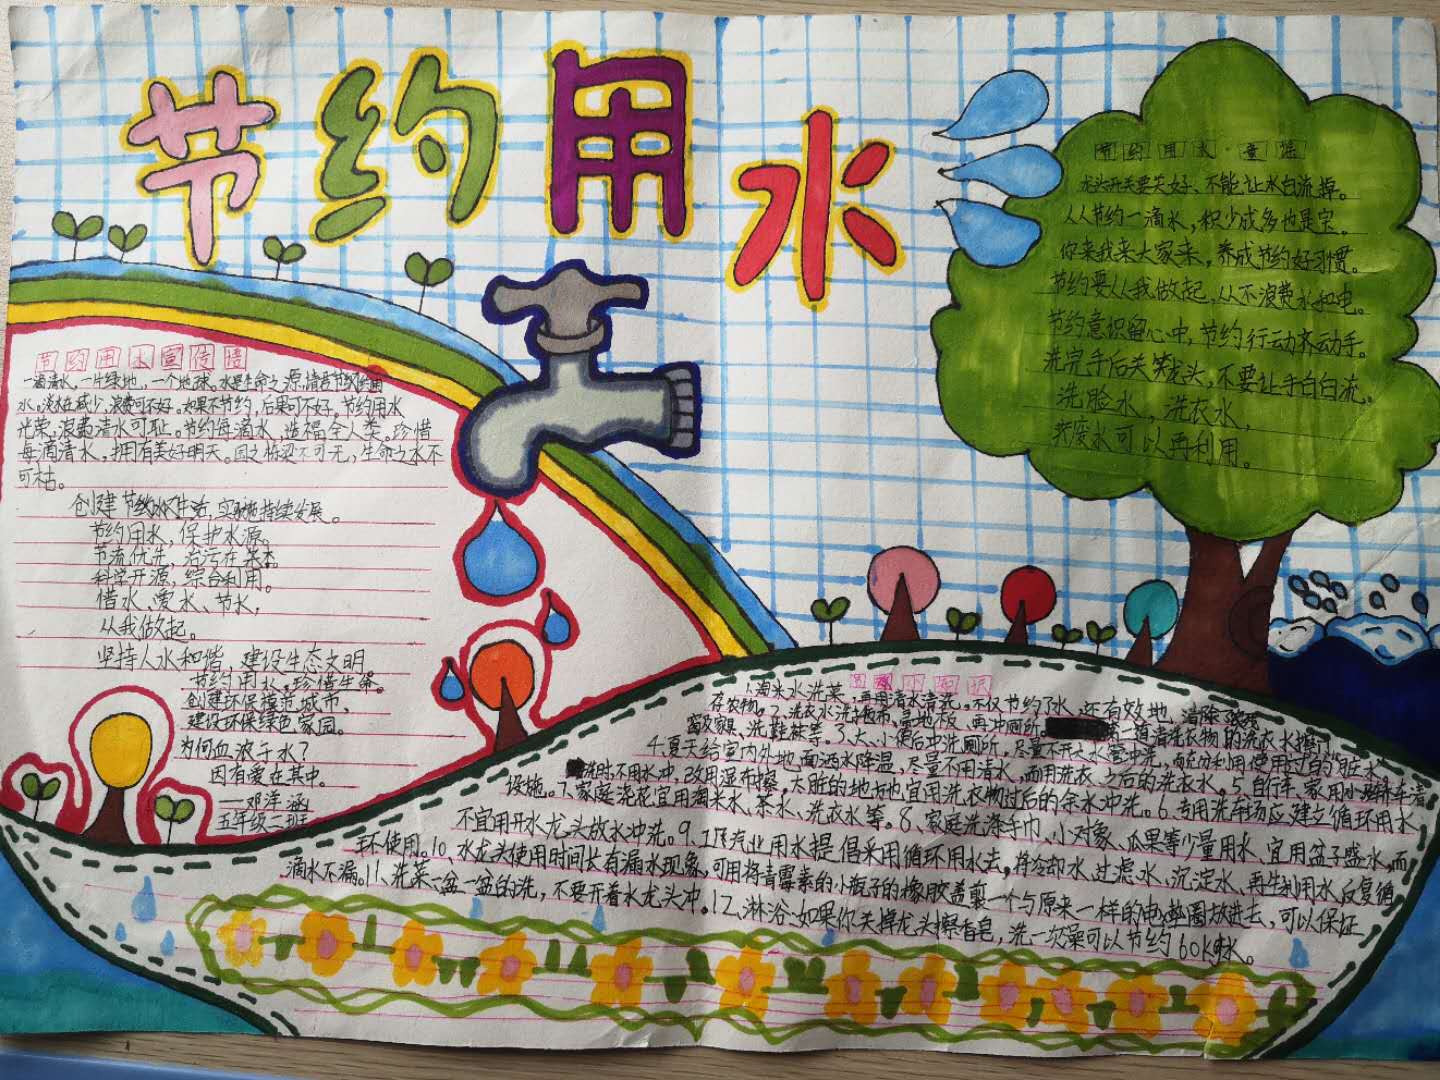 节约用水
节约用水宣传语
一滴清水,一片绿地,一个地球。水是生命之源,请君节约
水。浪费可不好。如果不节约,后果可不好。节约用水
光荣,浪费清水可耻。节约每滴水,造福全人类。珍惜
每滴清水,拥有美好明天。国之栋梁不可无,生命之水不
可枯。
创建节水生活,实施持续发展。
节约用水,保护水源。
节流优先,治污在本。
科学开源,综合利用。
惜水、爱水、节水,
从我做起。
坚持人水和谐,建设生态文明。
节约用水,珍惜生命。
创建环保模范城市,
建设环保绿色家园。
为何血浓于水?
因有爱在其中。
——邓洋涵
五年级二班
节约用水·童谣
龙头开关要关好、不能让水白流掉。
人人节约一滴水,积少成多也是宝。
你来我来大家来,养成节约好习惯。
节约要从我做起,从不浪费水和电。
节约意识留心中,节约行动齐动手。
洗完手后关笼头,不要让手白白流。
洗脸水,洗衣水,
废水可以再利用。
1.淘米水洗菜,再用清水清洗,不仅节约了水,还有效地,清除了
存农物。2、洗衣水洗拖布、拖地板、再冲厕所。第二道清洗衣物的洗衣水擦门
窗及家具、洗鞋袜等。3、大、小便后冲洗厕所,尽量不开大水管冲洗,而充分利用使用过的"脏水"。
4.夏天给室内外地面洒水降温,尽量不用清水,而用洗衣之后的洗衣水。5.自行车、家用小轿车清
洗时,不用水冲,改用湿布擦,太脏的地方,也宜用洗衣物过后的余水冲洗。6、专用洗车场应建立循环用水
设施。7、家庭浇花宜用淘米水、茶水、洗衣水等。8、家庭洗涤手巾、小对象、瓜果等少量用水、宜用盆子盛水,而
不宜用开水龙头放水冲洗。9、工厂汽业用水提倡采用循环用水去,将冷却水、过滤水、沉淀水、再生利用水反复循
环使用。10、水龙头使用时间长有漏水现象,可用将青霉素的小瓶子的橡胶盖剪一个与原来一样的电垫圈放进去,可以保证
滴水不漏。11、洗菜一盆一盆的洗,不要开着水龙头冲。12、淋浴:如果你关掉龙头擦香皂,洗一次澡可以节约60k水。